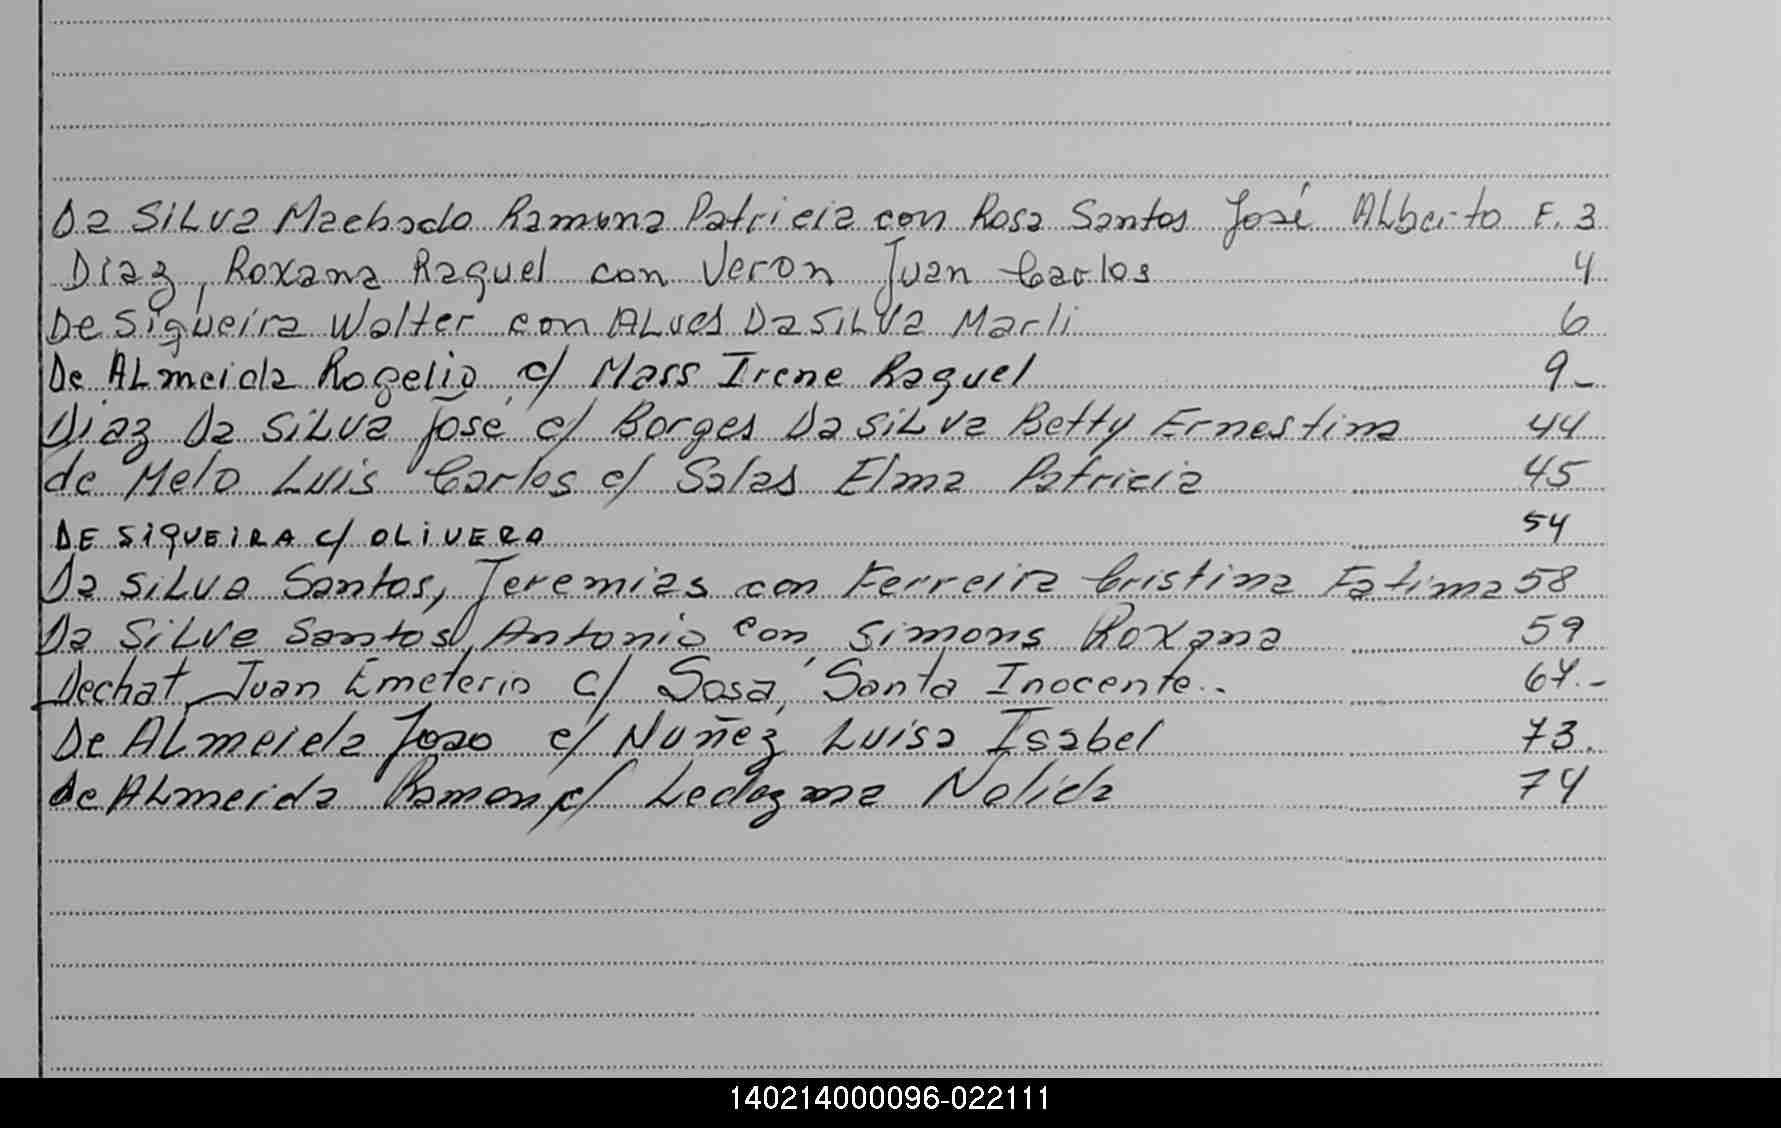 Da Silva Machado Ramona Patricia con Rosa Santos José Alberto F. 3
Diaz, Roxana Raquel con Veron Juan Carlos 4
De Siqueira Walter con Alves Da Silva Marli 6
De Almeida Rogelio c/ Mass Irene Raquel 9_
Diaz Da Silva José c/ Borges Da Silva Betty Ernestina 44
de Melo Luis Carlos c/ Salas Elma Patricia 45
DE SIQUEIRA C/ OLIVERA 54
Da Silva Santos, Jeremias con Ferreira Cristina Fatima 58
Da Silva Santos, Antonio con Simons Roxana 59
Dechat, Juan Emeterio c/ Sosa, Santa Inocente.. 67.-
De Almeida Joao c/ Nuñez Luisa Isabel 73.
de Almeida Ramon c/ Ledezma Nelida 74
140214000096-022111